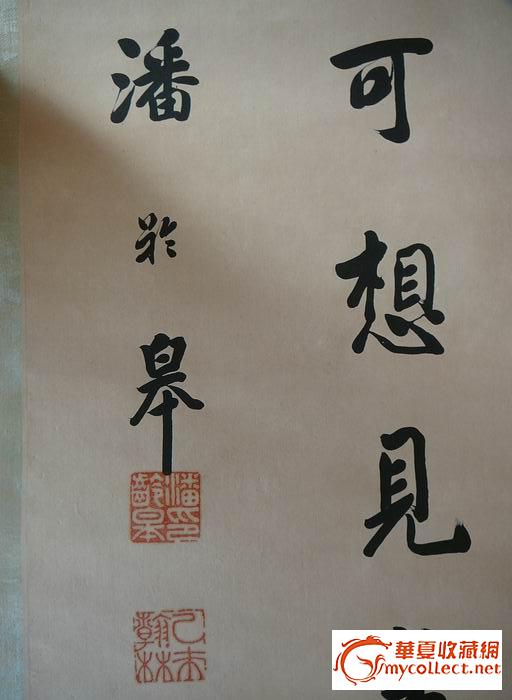 可想見
潘齡皋
潘印齡皋
乙未翰林
華夏收藏網
mycollect.net